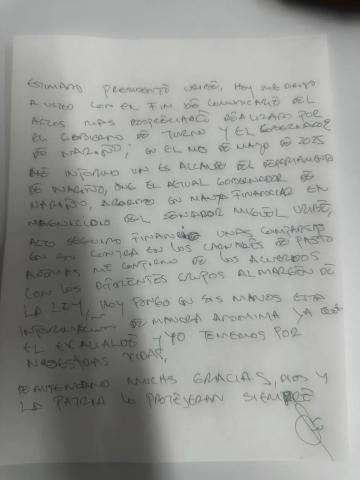 ESTIMADO PRESIDENTE URIBE, HOY ME DIRIJO
A USTED CON EL FIN DE COMUNICARLE DEL
ACTOS MAS DESPRECIABLE REALIZADO POR
EL GOBIERNO DE TURNO Y EL GOBERNADOR
DE NARIÑO; EN EL MES DE MAYO DE 2025
ME INFORMO UN EX ALCALDE DEL DEPARTAMENTO
DE NARIÑO, QUE EL ACTUAL GOBERNADOR DE
NARIÑO, EN FINANCIAR EN
MAGNICIDIO DEL SENADOR MIGUEL URIBE,
ACTO SEGUIDO UNAS
EN SU CONTRA EN LOS DE PASTO
ADEMAS ME CONFIRMO DE LOS ACUERDOS
CON LOS DIFERENTES GRUPOS AL MARGEN DE
LA LEY, HOY PONGO EN SUS MANOS ESTA
INFORMACION DE MANERA ANONIMA YA QUE
EL EX ALCALDE Y YO TEMEMOS POR
NUESTRAS VIDAS,
DE ANTEMANO MUCHAS GRACIAS, DIOS Y
LA PATRIA LO PROTEJERAN SIEMPRE